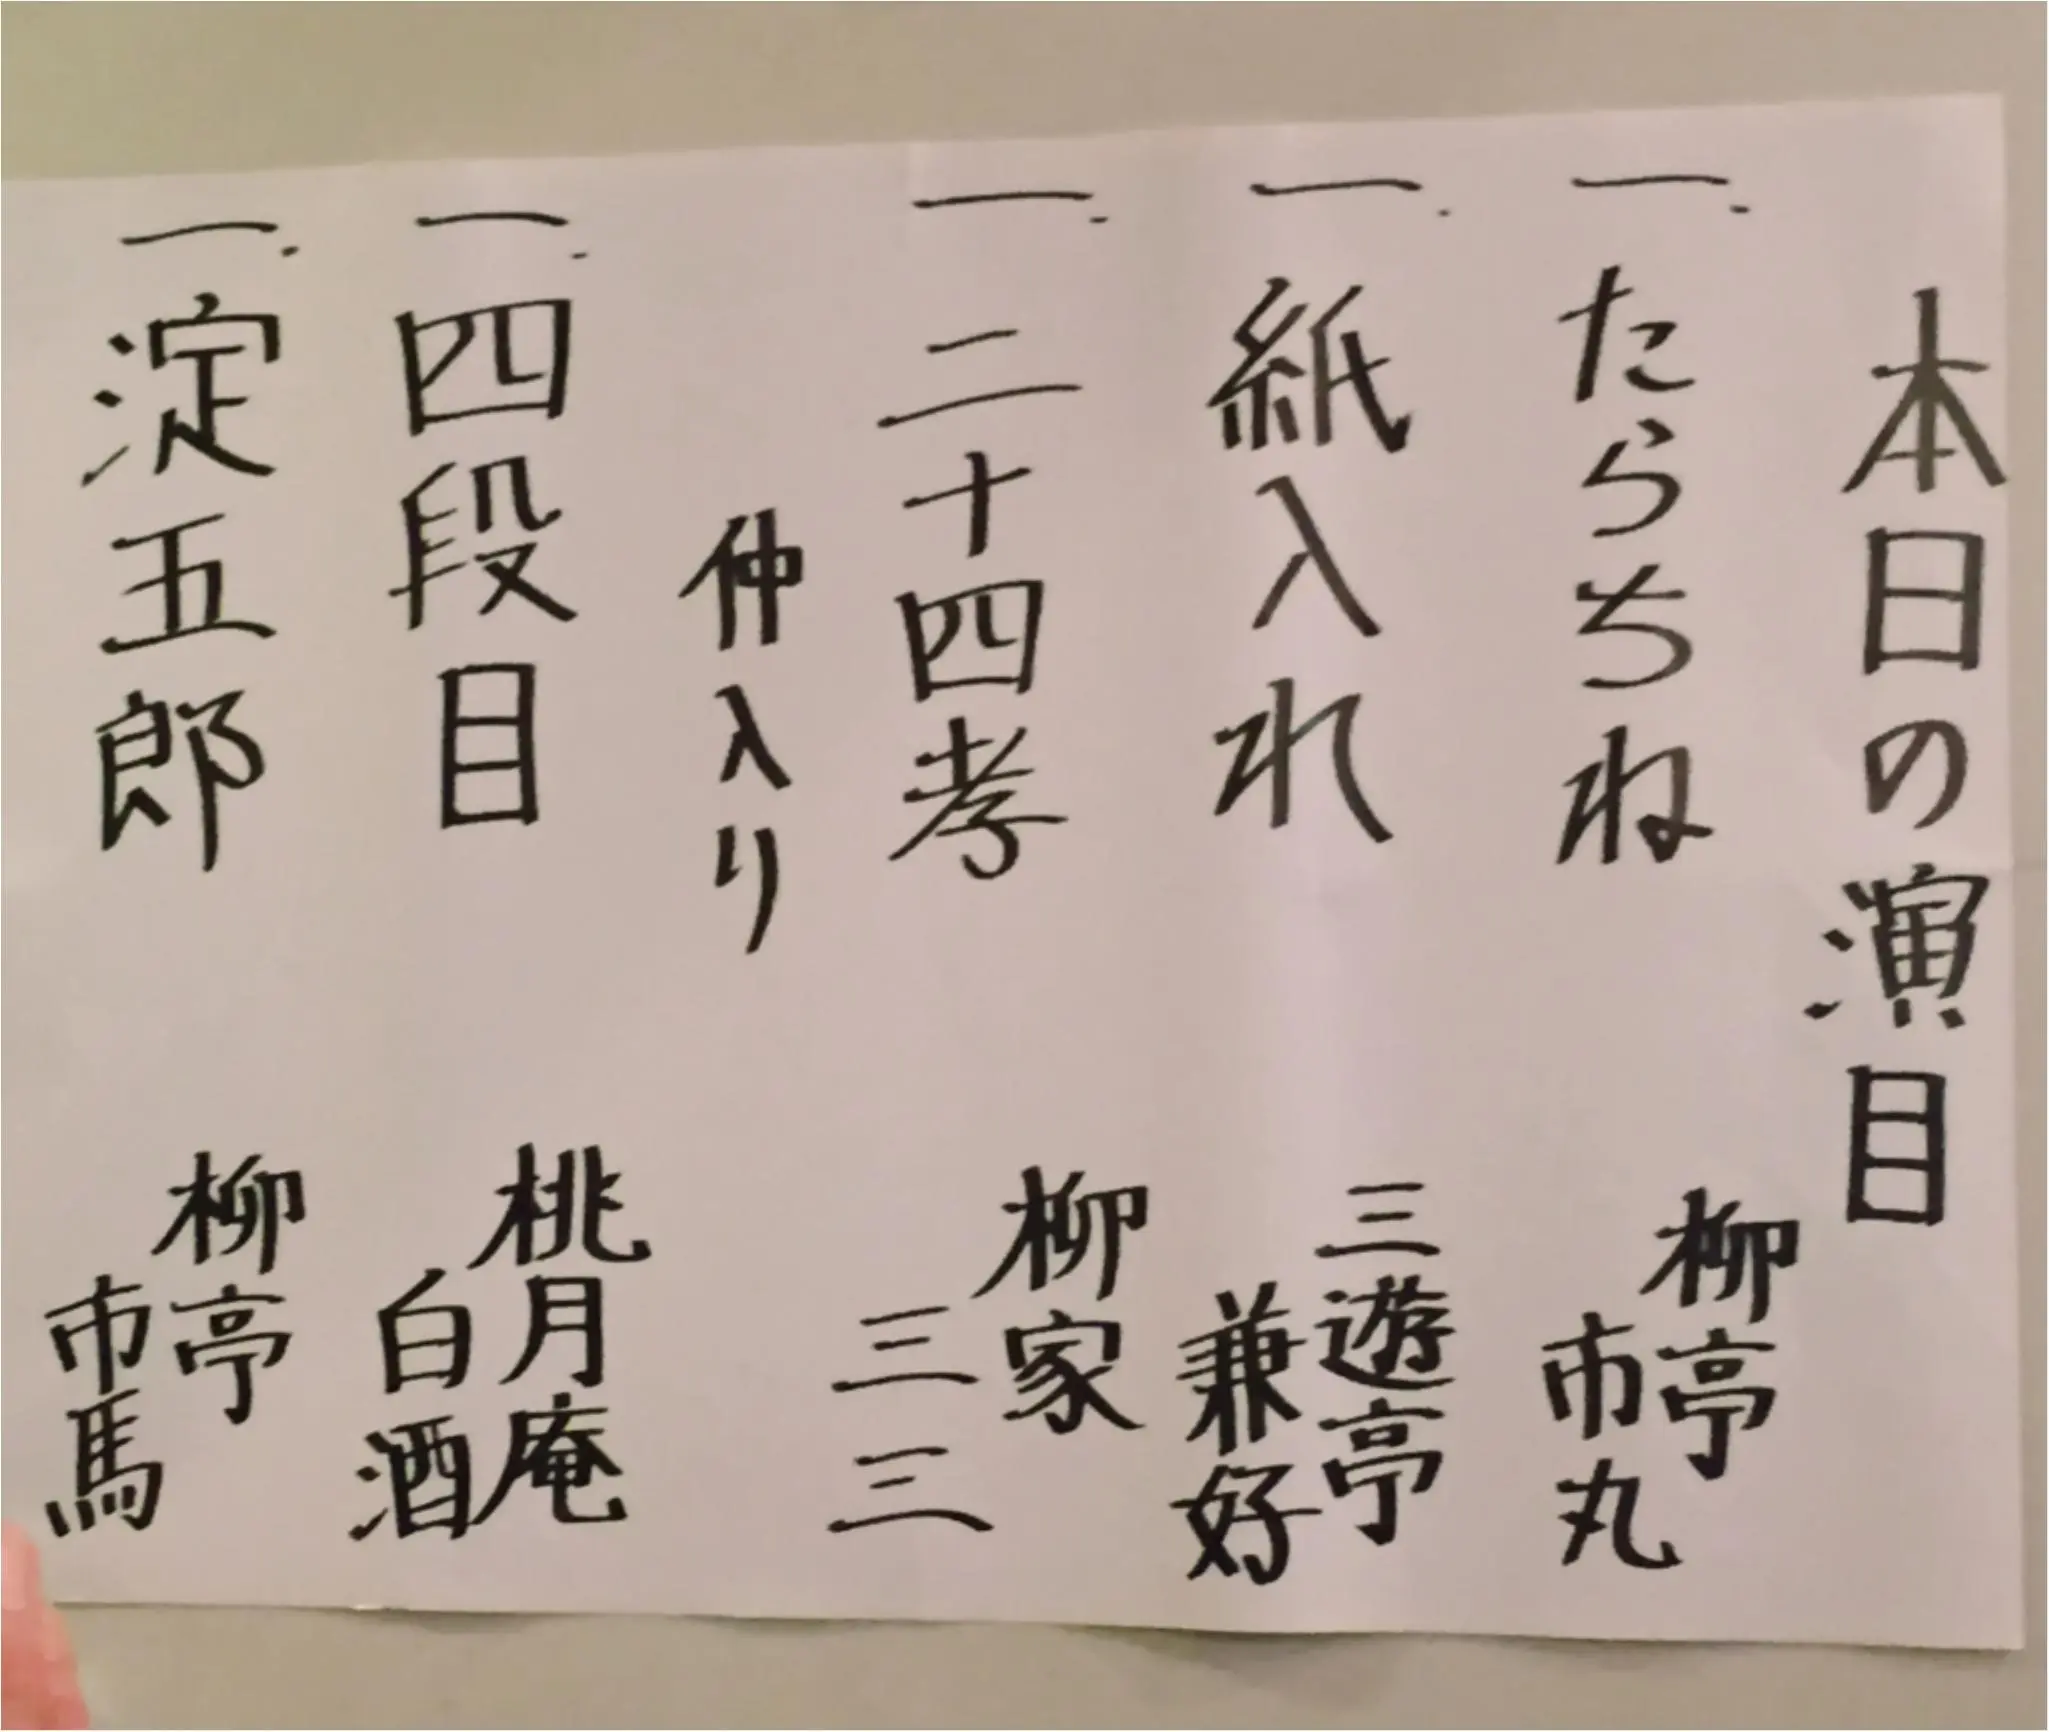 本日の演目
一、たらちね 柳亭市丸
一、紙入れ 三遊亭兼好
一、二十四孝 柳家三三
仲入り
一、四段目 桃月庵白酒
一、淀五郎 柳亭市馬